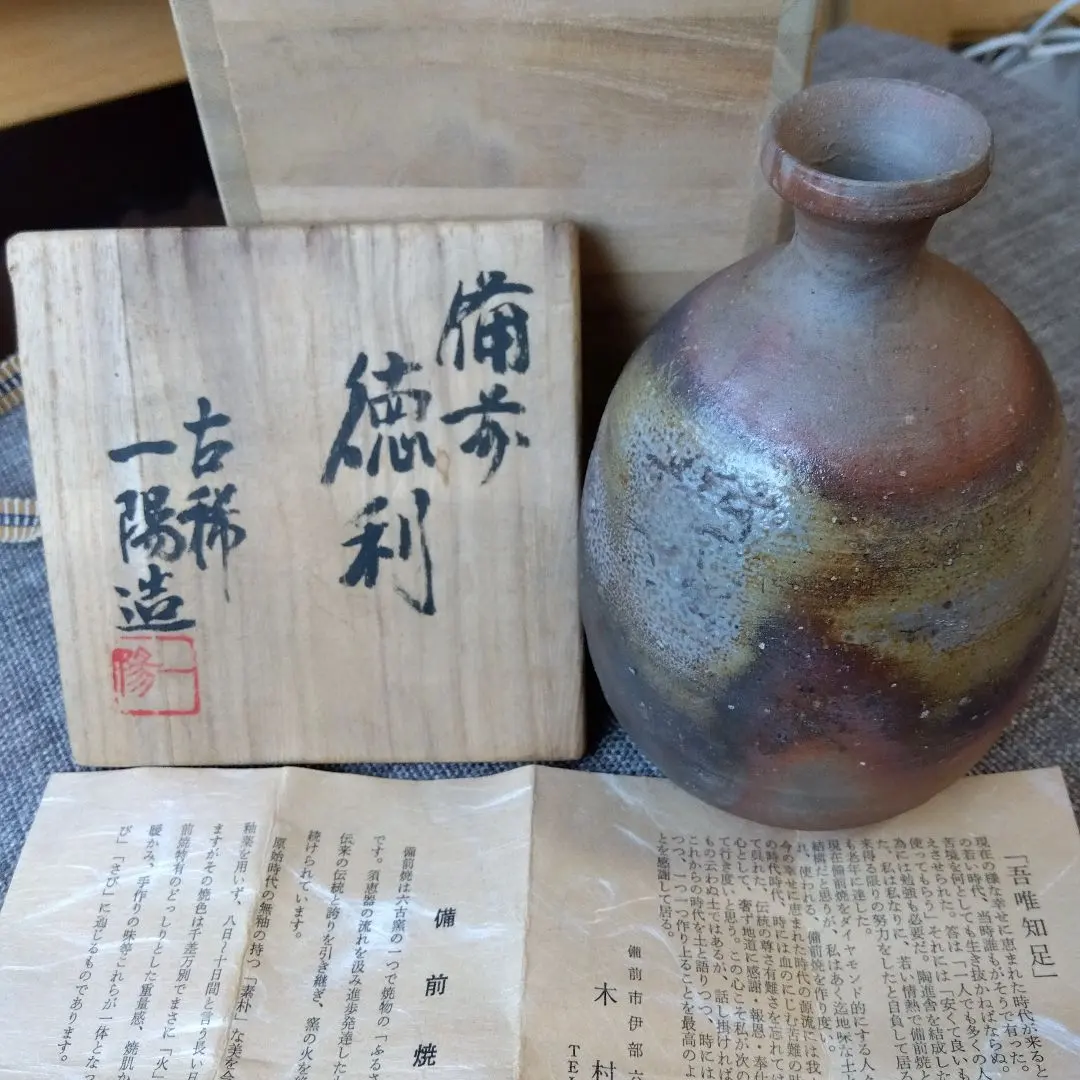 備前
徳利
古稀
一陽造
「吾唯知足」
現在の様な幸せに恵まれた時代が来ると
の若い時代、当時誰もがそうで有った。
苦境を何としても生き抜かねばならぬ。
えさせられた。答は「一人でも多くの人
使ってもらう」それには「安くて良いも
為には勉強も必要だ。陶進舎を結成した
た。私は私なりに、若い情熱で備前焼と
来得る限りの努力をしたと自負して居る
も老年に達した。
現在備前焼をダイヤモンド的にする人
結構だと思うが、私はあく迄地味な土
れ、使われる、備前焼を作り度い。
今の幸せに恵まれた時代の源流には我
の時代時代、時には血のにじむ苦難の時
て貝れた、伝統の尊さ有難さを忘れては
心として、奢ず地道に感謝・報恩・奉仕
て行き度いと思う。この心こそ私が次の
もの云わぬ土ではあるが、話し掛ければ
これからの時代を土と語りつつ、時には
つつ、一つ一つ作り上ることを最高のよ
とを感謝して居る。
備前市伊部六
木村
TEL
備前焼
備前焼は六古窯の一つで焼物の「ふるさ
です。須恵器の流れを汲み進歩発達した
伝来の伝統と誇りを引き継ぎ、窯の火を
続けられています。
原始時代の無袖の持つ「素朴」な美を
釉薬を用いず、八日〜十日間と言う長い
ますがその焼色は千差万別でまさに「火」
前焼特有のどっしりとした重量感、焼肌
暖かみ、手作りの味等これらが一体となっ
び」「さび」に通じるものであります。